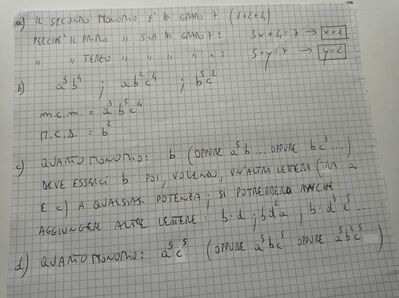 a) IL SECONDO MONOMIO E' DI GRADO 7 (1+2+4)
PERCHÉ IL PRIMO " SIA DI GRADO 7: 3x+4=7 → x=1
" " TERZO " " " " : 5+y=7 → y=2
b) a³b⁴ ; ab²c⁴ ; b⁵c²
m.c.m. = a³b⁵c⁴
M.C.D. = b²
c) QUARTO MONOMIO: b (OPPURE a⁵b ... OPPURE bc³...)
DEVE ESSERCI b POI, VOLENDO, UN'ALTRA LETTERA (TRA a
E c) A QUALSIASI POTENZA; SI POTREBBERO ANCHE
AGGIUNGERE ALTRE LETTERE: b·d ; bd²a ; b·d³c⁵...
d) QUARTO MONOMIO: a⁵c⁵ (OPPURE a⁵bc⁵ OPPURE a⁵b²c⁵)